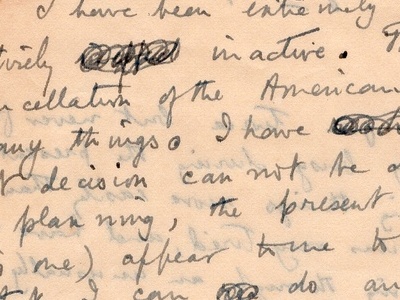 I have been extremely
tively inactive.
ncellation of the American
any things. I have
t decision can not be
planning, the present
one) appear to me to
I can do an